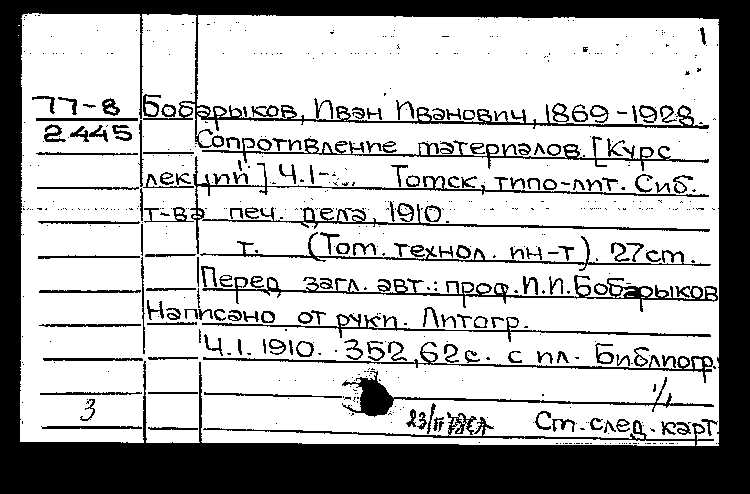 1
77-8 Бобарыков, Иван Иванович, 1869-1928.
2445 Сопротивление материалов. [Курс
лекций]. Ч.1- Томск, типо-лит. Сиб.
т-ва печ. дела, 1910.
т. (Том. технол. ин-т). 27см.
Перед загл. авт.: проф. И.И. Бобарыков
Написано от руки. Литогр.
Ч.1. 1910. 352, 62с. с ил. Библиогр.
1/1
3 23/II Ст. след. карт.